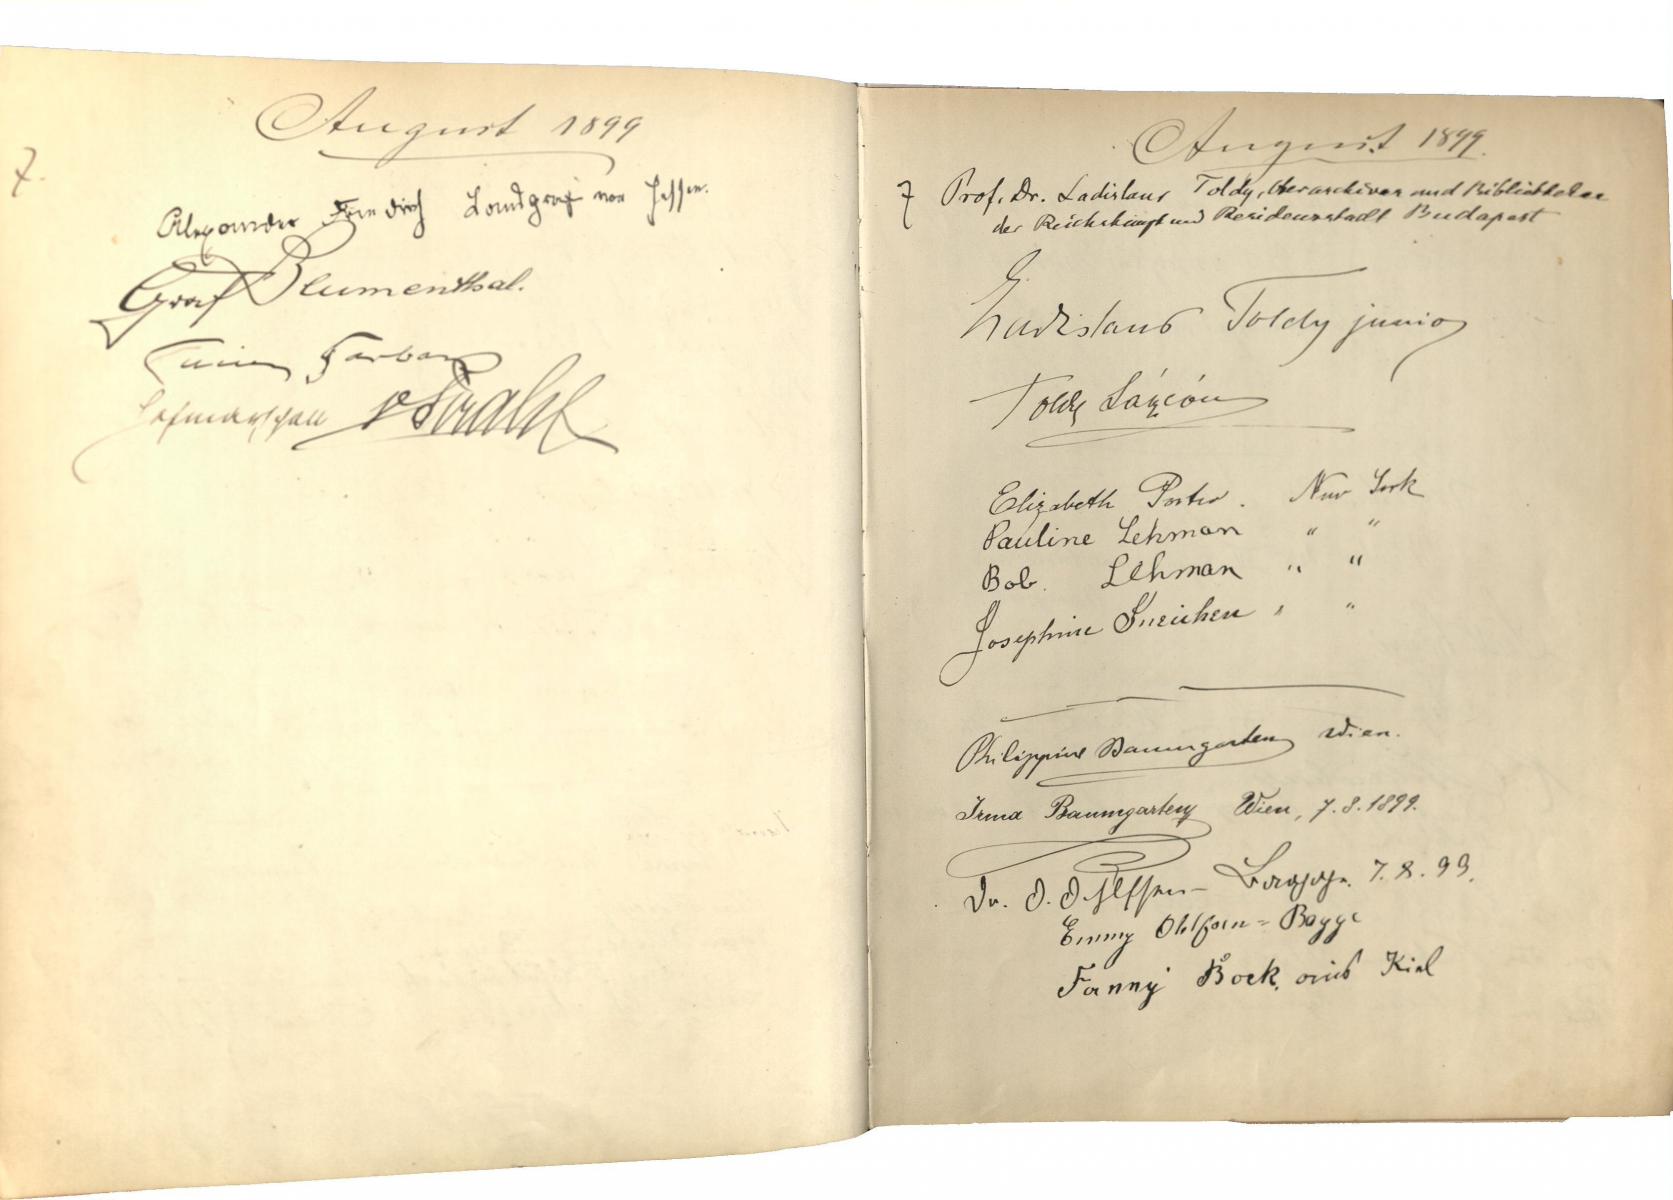 August 1899
7.
Alexander Friedrich Landgraf von Hessen.
Graf Blumenthal.
Hofmarschall v Strahl
August 1899.
7 Prof. Dr. Ladislaus Toldy, Oberarchivar und Bibliothekar
der Reichshaupt und Residenzstadt Budapest
Ladislaus Toldy junior
Toldy
Elizabeth Porter. New York
Pauline Lehman " "
Bob. Lehman " "
Josephine " "
Philippine Baumgarten Wien.
Irma Baumgarten Wien, 7.8.1899.
Dr. O. Ohlsen- 7.8.99.
Emmy - Bagge
Fanny Bock. aus Kiel